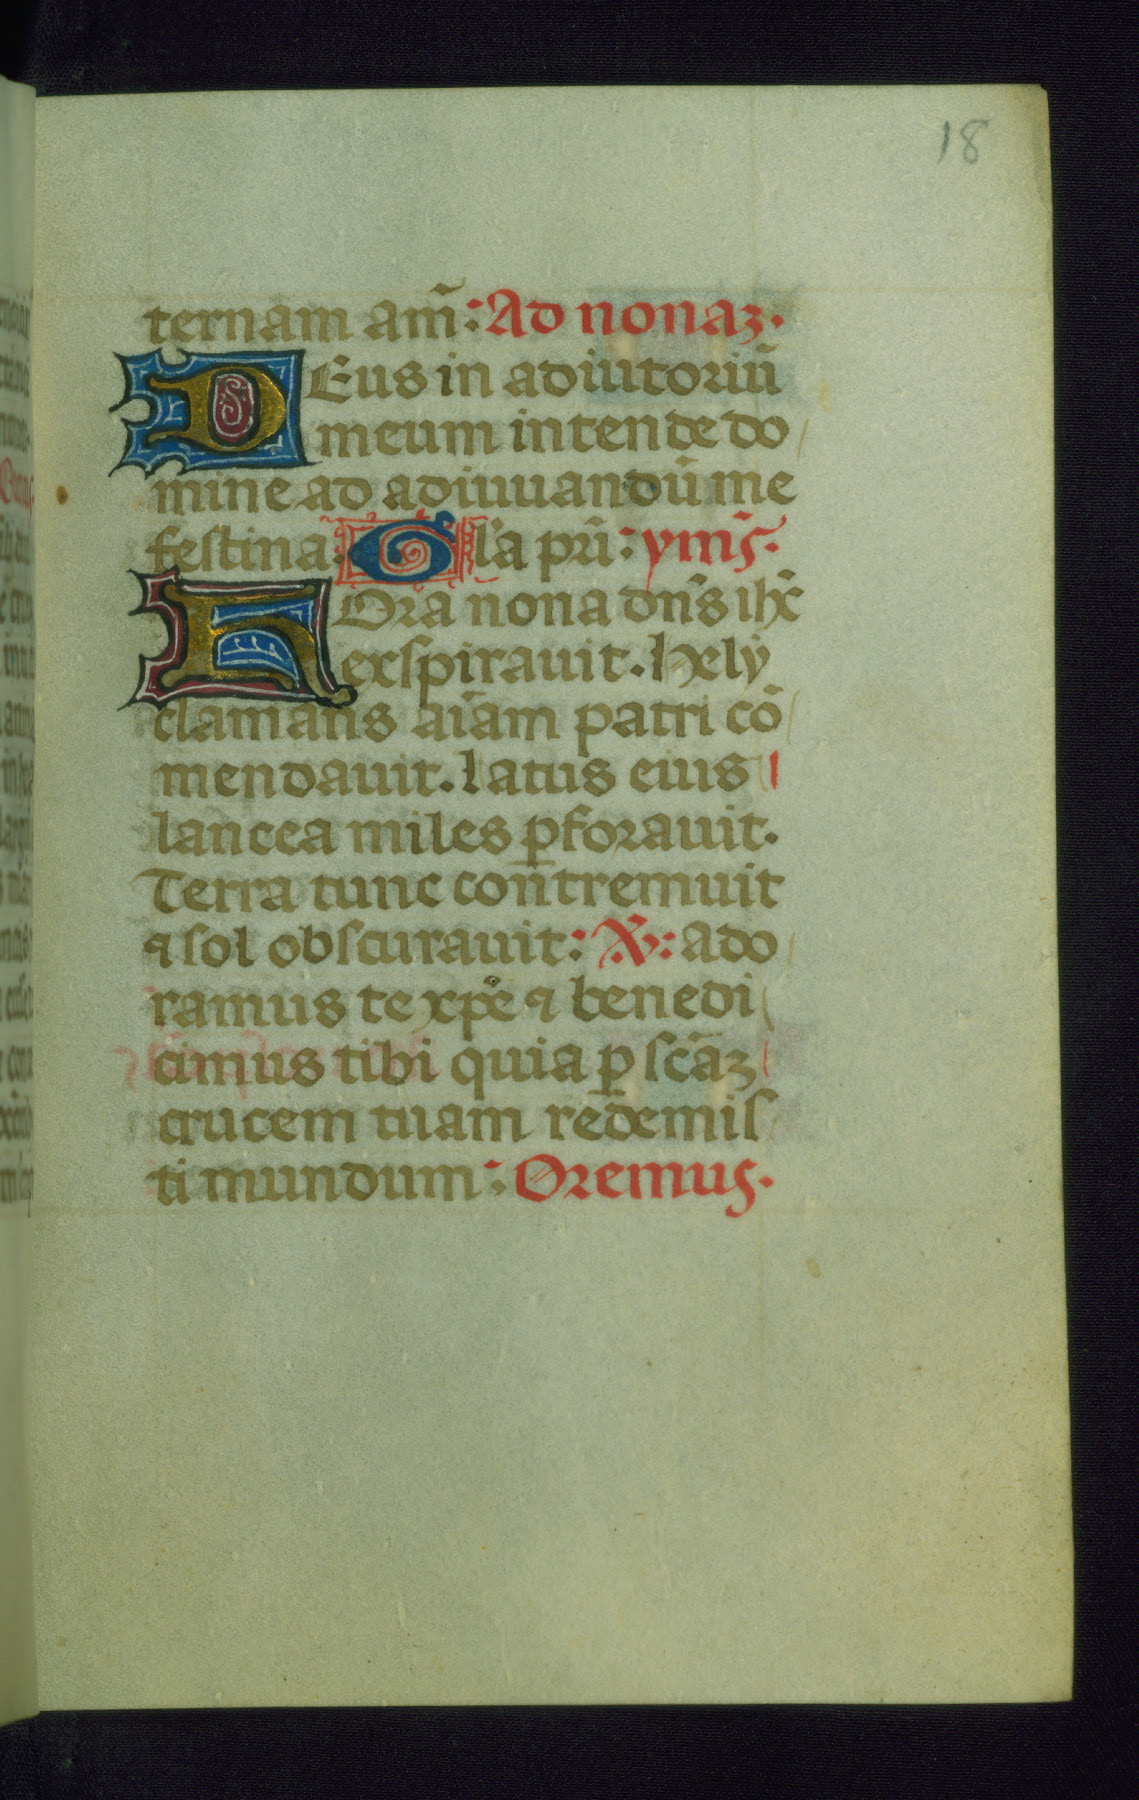 18
ternam am̄: Ad nonaꝫ.
DEus in adiutoriū
meum intende do
mine ad adiuuandū me
festina: Gl'a pri̅: ymn̄s.
HOra nona dn̄s ihc̄
exspirauit. hely
clamans ai̅am patri co̅
mendauit. latus eius
lancea miles ꝑforauit.
Terra tunc contremuit
⁊ sol obscurauit: ℣: ado
ramus te xpe̅ ⁊ benedi
cimus tibi quia ꝑ sca̅ꝫ
crucem tuam redemis
ti mundum: Oremus.